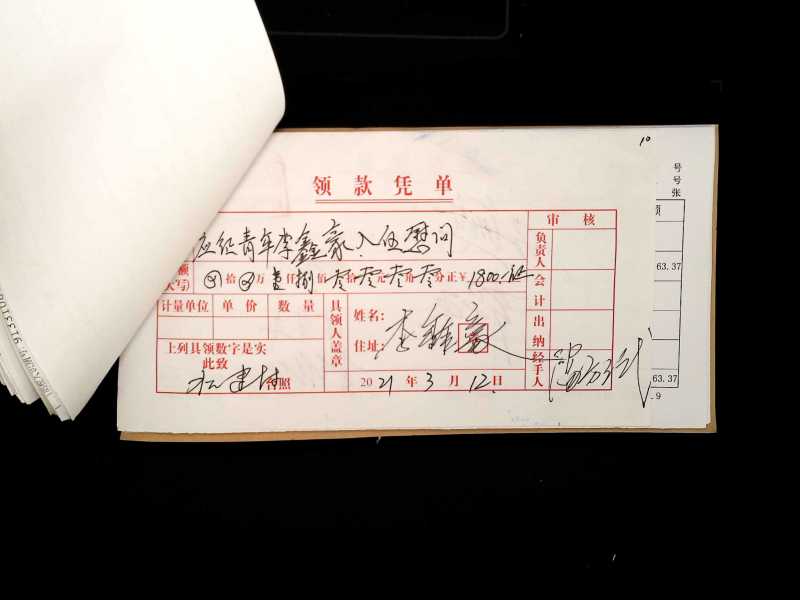 10
领款凭单
青年李鑫豪入伍慰问
审核
负责人
会计
出纳
经手人
额
大写)
拾 万壹仟捌佰零拾零元零角零分正¥1800.
计量单位 单价 数量
具领人盖章
姓名:
住址:
李鑫豪
上列具领数字是实
此致
台照
2021年3月12日
号
号
张
63.37
63.37